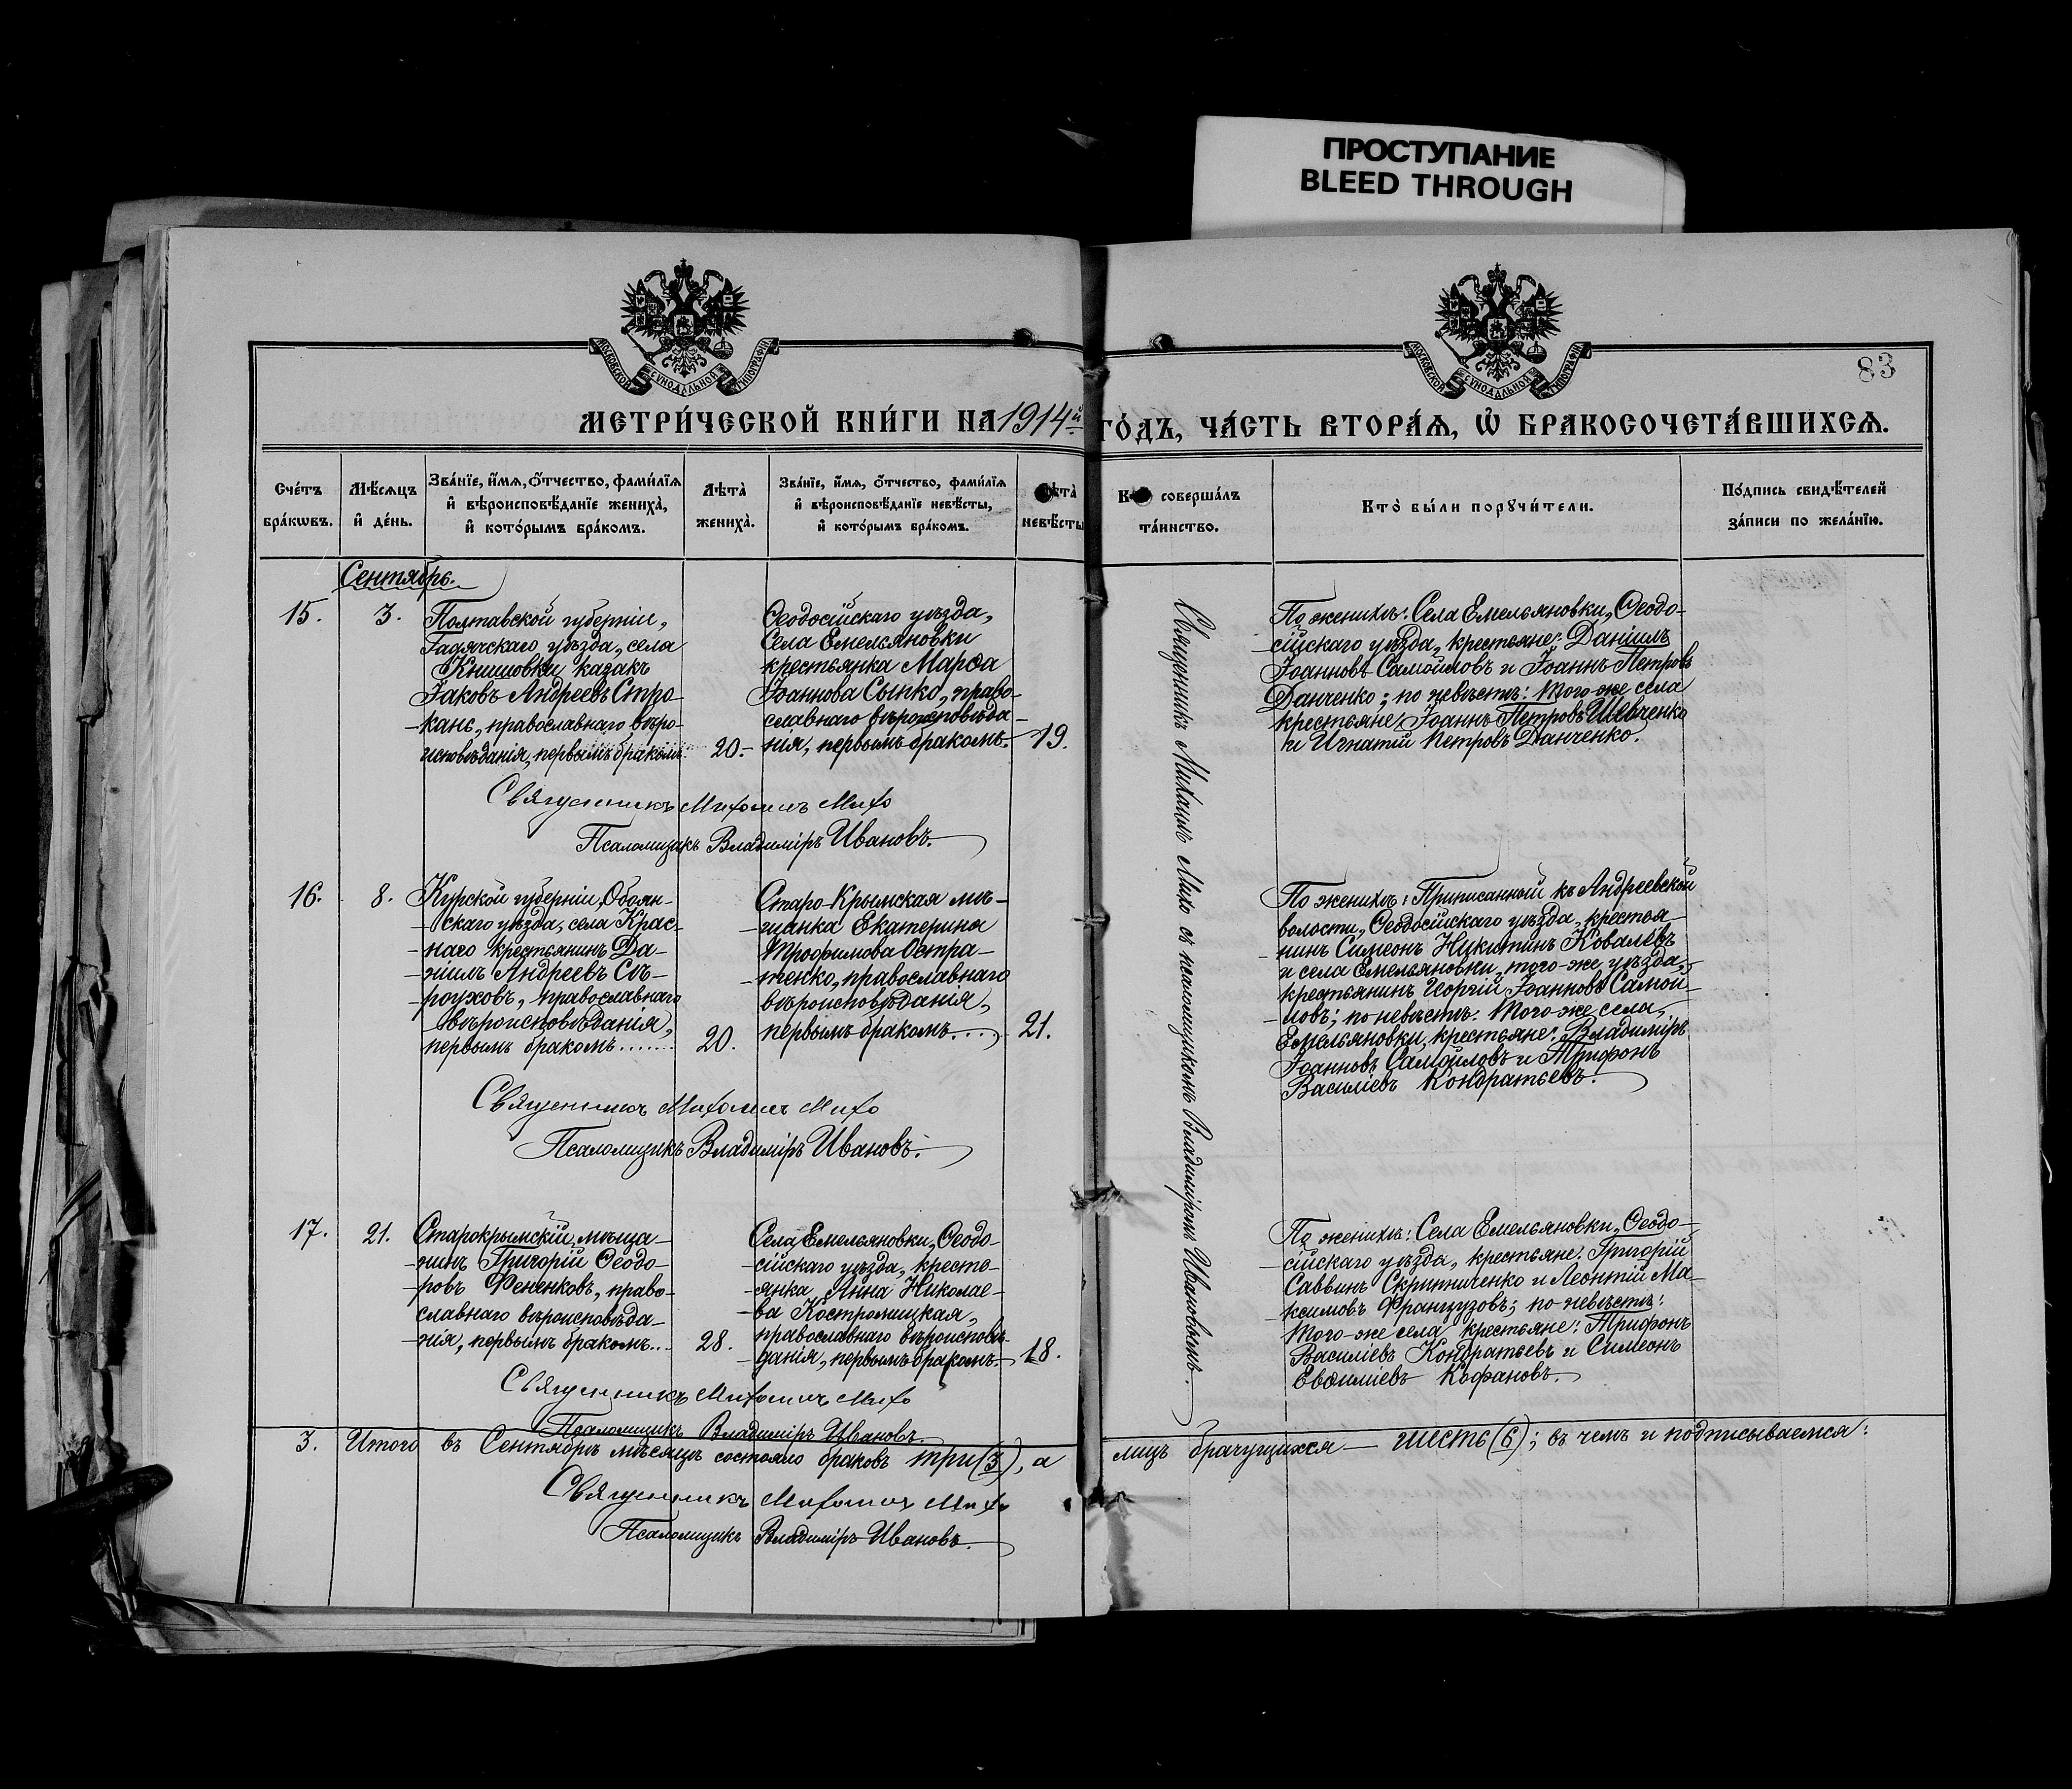 ПРОСТУПАНИЕ
BLEED THROUGH
МОСКОВСКОЙ СУНОДАЛЬНОЙ ТИПОГРАФІИ
МОСКОВСКОЙ СУНОДАЛЬНОЙ ТИПОГРАФІИ
83
МЕТРИ́ЧЕСКОЙ КНИ́ГИ НА 1914й ГО́ДЪ, ЧА́СТЬ ВТОРА́Ѧ, Ѡ҆ БРАКОСОЧЕТА́ВШИХСѦ.
Сче́тъ
бра́кѡвъ.
Мѣ́сѧцъ
и҆ де́нь.
Зва́нїе, и҆́мѧ, ѻ҆́тчество, фами́лїѧ
и҆ вѣроисповѣ́данїе жениха̀,
и҆ кото́рымъ бра́комъ.
Лѣта̀
жениха̀.
Зва́нїе, и҆́мѧ, ѻ҆́тчество, фами́лїѧ
и҆ вѣроисповѣ́данїе невѣ́сты,
и҆ кото́рымъ бра́комъ.
Лѣта̀
невѣ́сты
Кто̀ соверша́лъ
та́инство.
Кто̀ бы́ли порꙋчи́тели.
По́дпись свидѣ́телей
за́писи по жела́нїю.
Сентябрь.
15.
3.
Полтавской губерніи,
Гадячскаго уѣзда, села
Книшовки казакъ
Іаковъ Андреевъ Стро-
-кань, православнаго вѣро-
исповѣданія, первымъ бракомъ.
20.-
Ѳеодосійскаго уѣзда,
Села Емельяновки
крестьянка Марѳа
Іоаннова Сыпко, право-
славнаго вѣроисповѣда-
-нія, первымъ бракомъ.
19.
Священникъ Михаилъ Михо съ псаломщикомъ Владиміромъ Ивановымъ.
По женихѣ: Села Емельяновки, Ѳеодо-
-сійскаго уѣзда, крестьяне: Даніилъ
Іоанновъ Самойловъ и Іоаннъ Петровъ
Данченко; по невѣстѣ: того-же села
крестьяне: Іоаннъ Петровъ Шевченко
и Игнатій Петровъ Данченко.
Священникъ Михаилъ Михо
Псаломщикъ Владиміръ Ивановъ.
16.
8.
Курской губерніи, Обоян-
-скаго уѣзда, села Крас-
-наго крестьянинъ Да-
-ніилъ Андреевъ Сѣ-
-роуховъ, православнаго
-вѣроисповѣданія,
первымъ бракомъ.......
20.
Старо-Крымская мѣ-
-щанка Екатерина
Трофимова Остра-
-тенко, православнаго
вѣроисповѣданія,
первымъ бракомъ....
21.
По женихѣ: Приписанный къ Андреевской
волости, Ѳеодосійскаго уѣзда, крестья-
-нинъ Симеонъ Никитинъ Ковалевъ
и села Емельяновки, того-же уѣзда,
крестьянинъ Георгій Іоанновъ Самой-
-ловъ; по невѣстѣ: того-же села,
Емельяновки, крестьяне: Владиміръ
Іоанновъ Самойловъ и Трифонъ
Василіевъ Кондратьевъ.
Священникъ Михаилъ Михо
Псаломщикъ Владиміръ Ивановъ.
17.
21.
Старокрымскій мѣща-
-нинъ Григорій Ѳеодо-
-ровъ Фененковъ, право-
славнаго вѣроисповѣда-
-нія, первымъ бракомъ...
28.
Села Емельяновки, Ѳеодо-
-сійскаго уѣзда, кресть-
-янка Анна Николае-
-ва Костромицкая,
православнаго вѣроисповѣ-
-данія, первымъ бракомъ.
18.
По женихѣ: Села Емельяновки, Ѳеодо-
-сійскаго уѣзда, крестьяне: Григорій
Саввинъ Скрипниченко и Леонтій Ма-
-ксимовъ Французовъ; по невѣстѣ:
того-же села крестьяне: Трифонъ
Василіевъ Кондратьевъ и Симеонъ
Евѳиміевъ Кафановъ.
Священникъ Михаилъ Михо
Псаломщикъ Владиміръ Ивановъ.
3. Итого въ Сентябрѣ мѣсяцѣ состояло браковъ три (3), а лицъ брачущихся - шесть (6); въ чемъ и подписываемся:
Священникъ Михаилъ Михо
Псаломщикъ Владиміръ Ивановъ.